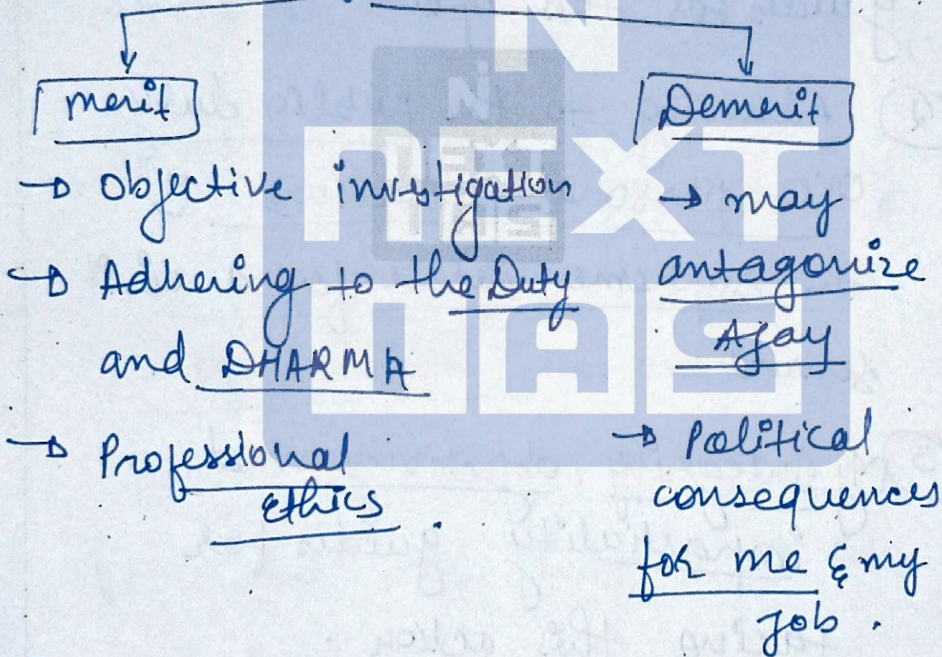 merit
Demerit
→ Objective investigation
→ Adhering to the Duty
and DHARMA
→ Professional
Ethics.
→ may
antagonize
Ajay
→ Political
consequences
for me & my
job.
NEXT
IAS